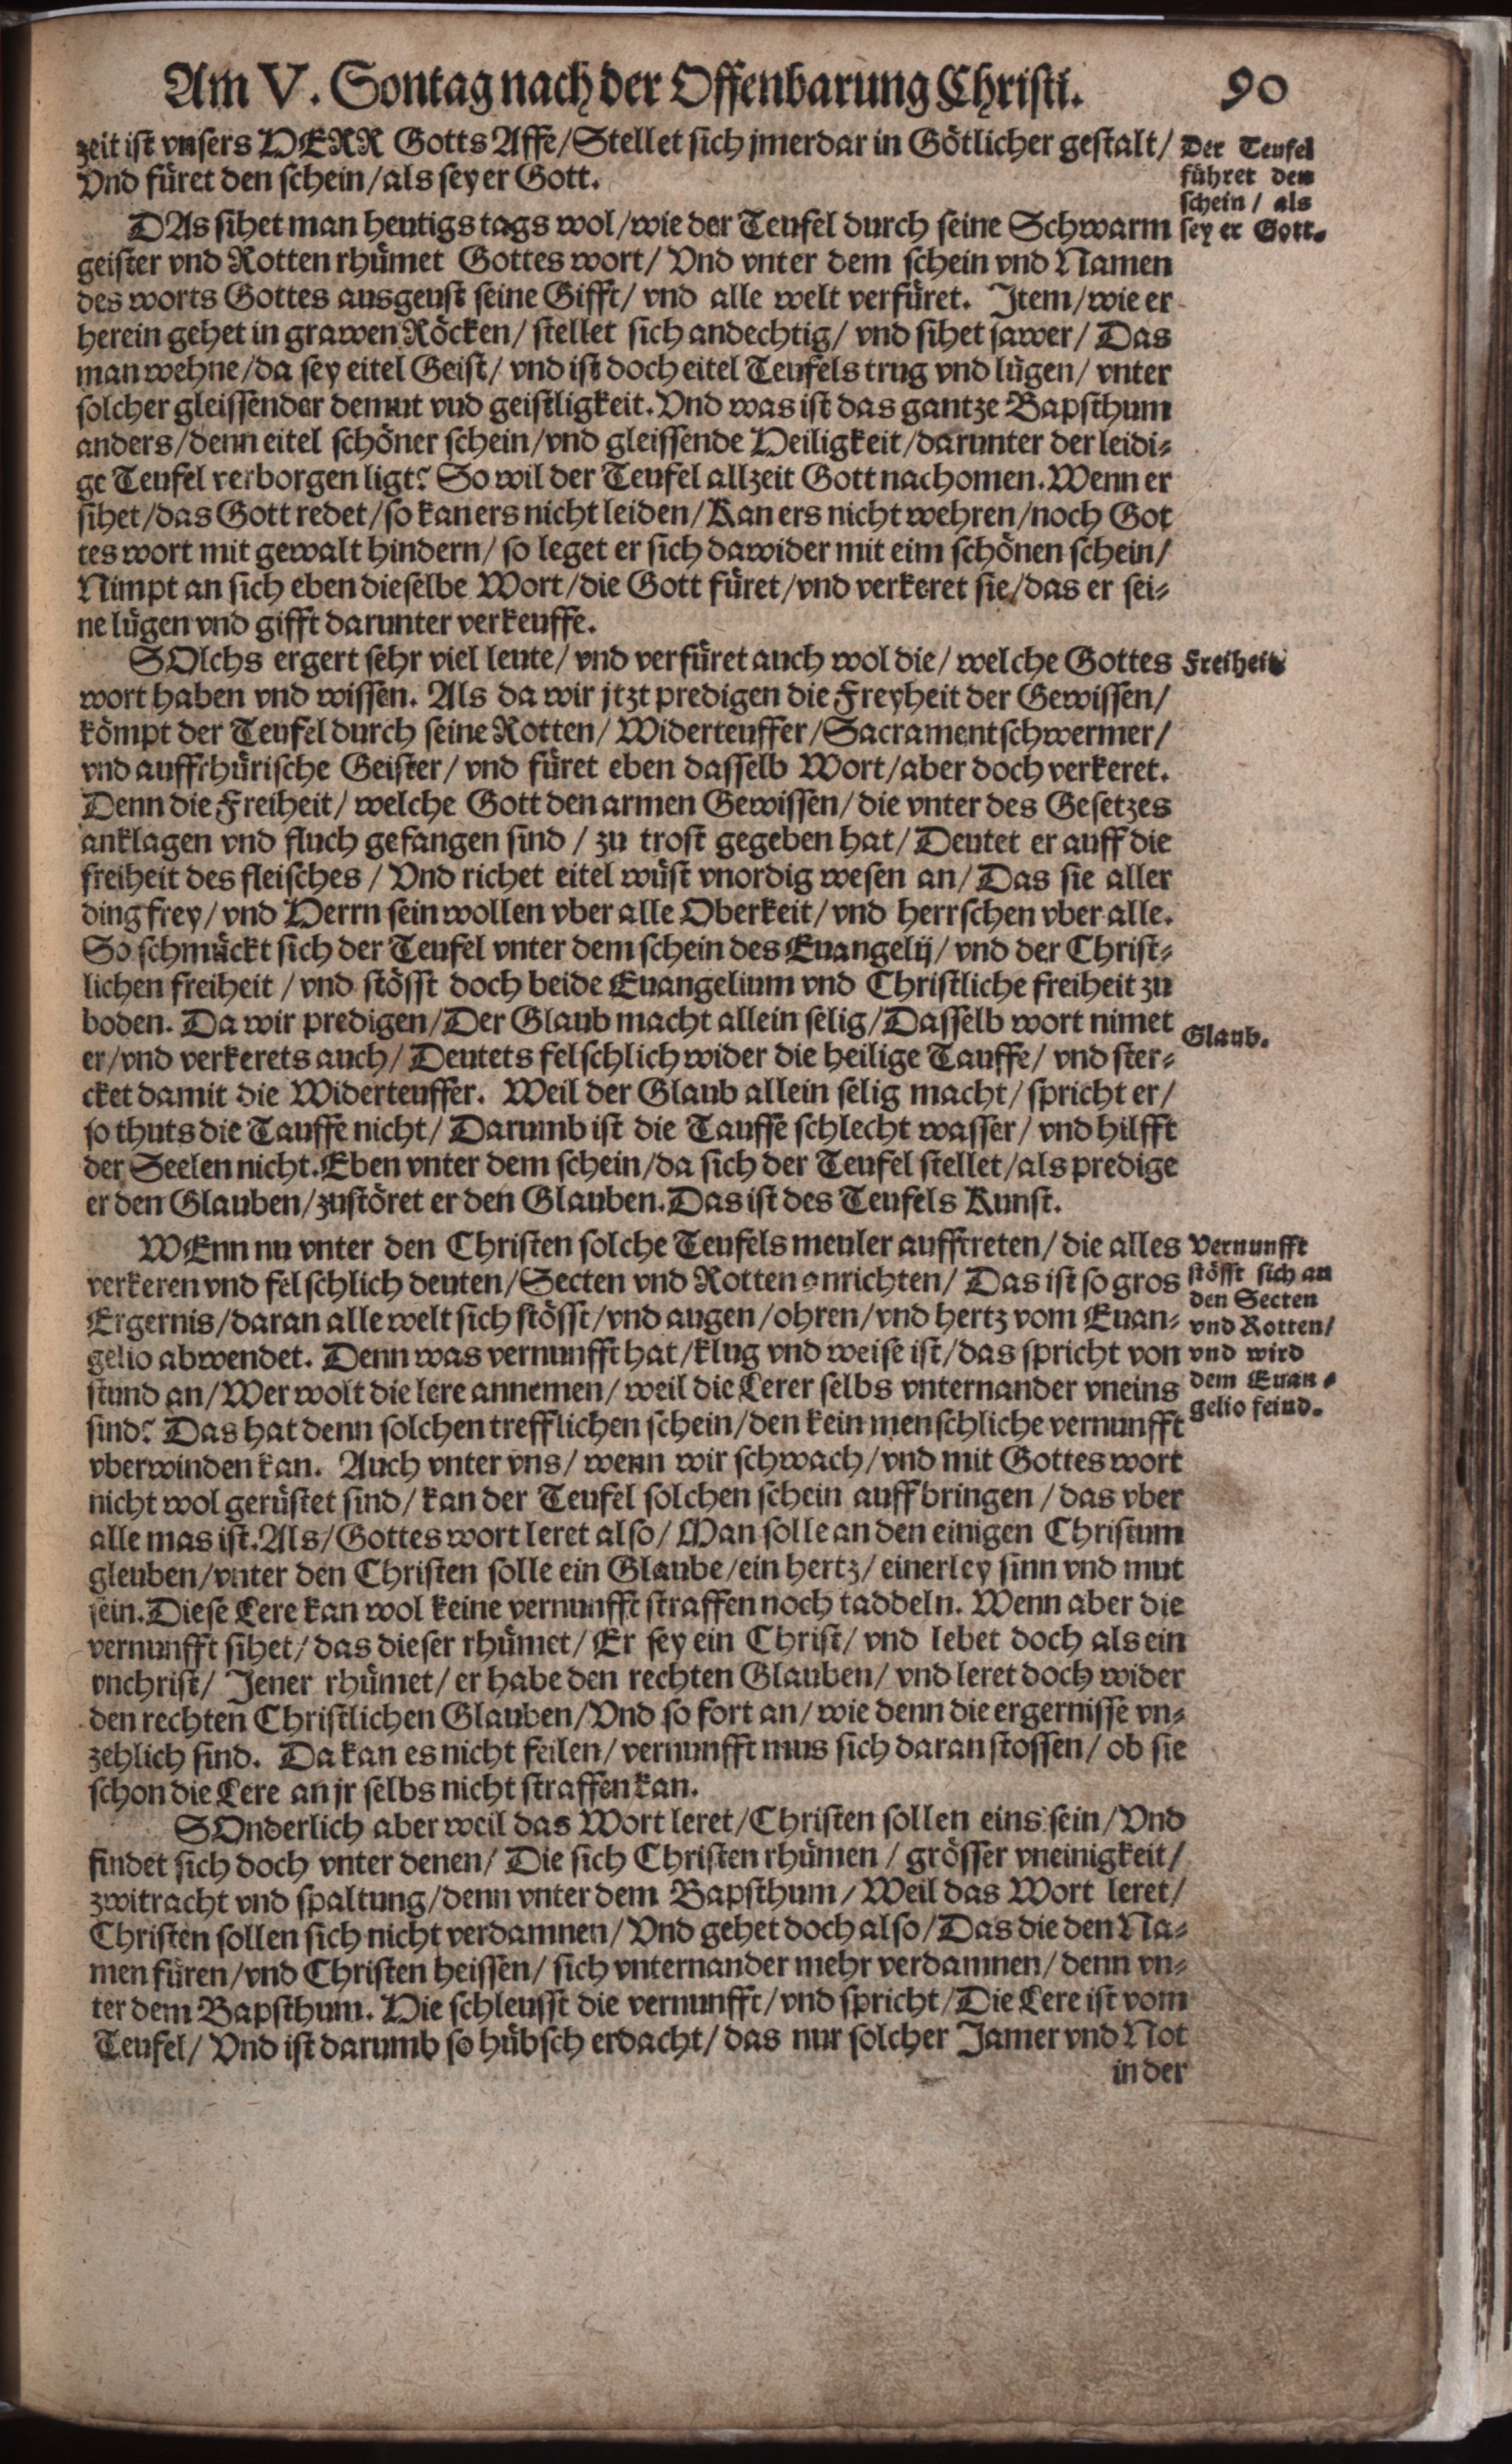 Am V. Sontag nach der Offenbarung Christi. 90
zeit ist vnsers HERR Gotts Affe/Stellet sich jmerdar in Götlicher gestalt/
Vnd füret den schein/als sey er Gott.
Der Teufel
führet den
schein/ als
sey er Gott.
DAs sihet man heutigs tags wol/wie der Teufel durch seine Schwarm
geister vnd Rotten rhümet Gottes wort/ Vnd vnter dem schein vnd Namen
des worts Gottes ausgeust seine Gifft/ vnd alle welt verfüret. Item/wie er
herein gehet in grawen Röcken/ stellet sich andechtig/ vnd sihet sawer/ Das
man wehne/da sey eitel Geist/ vnd ist doch eitel Teufels trug vnd lügen/ vnter
solcher gleissender demut vnd geistligkeit. Vnd was ist das gantze Bapsthum
anders/denn eitel schöner schein/vnd gleissende Heiligkeit/darunter der leidi-
ge Teufel verborgen ligt? So wil der Teufel allzeit Gott nachomen. Wenn er
sihet/das Gott redet/so kan ers nicht leiden/Kan ers nicht wehren/noch Got
tes wort mit gewalt hindern/ so leget er sich dawider mit eim schönen schein/
Nimpt an sich eben dieselbe Wort/die Gott füret/vnd verkeret sie/das er sei-
ne lügen vnd gifft darunter verkeuffe.
SOlchs ergert sehr viel leute/ vnd verfüret auch wol die/ welche Gottes
Freiheit
wort haben vnd wissen. Als da wir jtzt predigen die Freyheit der Gewissen/
kömpt der Teufel durch seine Rotten/ Widerteuffer/Sacramentschwermer/
vnd auffrhürische Geister/ vnd füret eben dasselb Wort/aber doch verkeret.
Denn die Freiheit/ welche Gott den armen Gewissen/ die vnter des Gesetzes
anklagen vnd fluch gefangen sind / zu trost gegeben hat/ Deutet er auff die
freiheit des fleisches / Vnd richet eitel wüst vnordig wesen an/ Das sie aller
ding frey/ vnd Herrn sein wollen vber alle Oberkeit/ vnd herrschen vber alle.
So schmückt sich der Teufel vnter dem schein des Euangelij/ vnd der Christ-
lichen freiheit / vnd stösst doch beide Euangelium vnd Christliche freiheit zu
boden. Da wir predigen/Der Glaub macht allein selig/Dasselb wort nimet
Glaub.
er/vnd verkerets auch/ Deutets felschlich wider die heilige Tauffe/ vnd ster-
cket damit die Widerteuffer. Weil der Glaub allein selig macht/ spricht er/
so thuts die Tauffe nicht/ Darumb ist die Tauffe schlecht wasser/ vnd hilfft
der Seelen nicht. Eben vnter dem schein/da sich der Teufel stellet/als predige
er den Glauben/zustöret er den Glauben. Das ist des Teufels Kunst.
WEnn nu vnter den Christen solche Teufels meuler aufftreten/ die alles
verkeren vnd felschlich deuten/Secten vnd Rotten anrichten/ Das ist so gros
Ergernis/daran alle welt sich stösst/vnd augen/ohren/vnd hertz vom Euan-
gelio abwendet. Denn was vernunfft hat/klug vnd weise ist/das spricht von
stund an/Wer wolt die lere annemen/ weil die Lerer selbs vnternander vneins
sind? Das hat denn solchen trefflichen schein/den kein menschliche vernunfft
Vernunfft
stösst sich an
den Secten
vnd Rotten/
vnd wird
dem Euan-
gelio feind.
vberwinden kan. Auch vnter vns/ wenn wir schwach/vnd mit Gottes wort
nicht wol gerüstet sind/ kan der Teufel solchen schein auffbringen / das vber
alle mas ist. Als/Gottes wort leret also/ Man solle an den einigen Christum
gleuben/vnter den Christen solle ein Glaube/ein hertz/ einerley sinn vnd mut
sein. Diese Lere kan wol keine vernunfft straffen noch taddeln. Wenn aber die
vernunfft sihet/ das dieser rhümet/ Er sey ein Christ/ vnd lebet doch als ein
vnchrist/ Jener rhümet/ er habe den rechten Glauben/ vnd leret doch wider
den rechten Christlichen Glauben/Vnd so fort an/ wie denn die ergernisse vn-
zehlich sind. Da kan es nicht feilen/ vernunfft mus sich daran stossen/ ob sie
schon die Lere an jr selbs nicht straffen kan.
SOnderlich aber weil das Wort leret/Christen sollen eins sein/Vnd
findet sich doch vnter denen/ Die sich Christen rhümen / grösser vneinigkeit/
zwitracht vnd spaltung/denn vnter dem Bapsthum/ Weil das Wort leret/
Christen sollen sich nicht verdamnen/Vnd gehet doch also/Das die den Na-
men füren/vnd Christen heissen/ sich vnternander mehr verdamnen/ denn vn-
ter dem Bapsthum. Hie schleusst die vernunfft/vnd spricht/Die Lere ist vom
Teufel/ Vnd ist darumb so hübsch erdacht/ das nur solcher Jamer vnd Not
in der